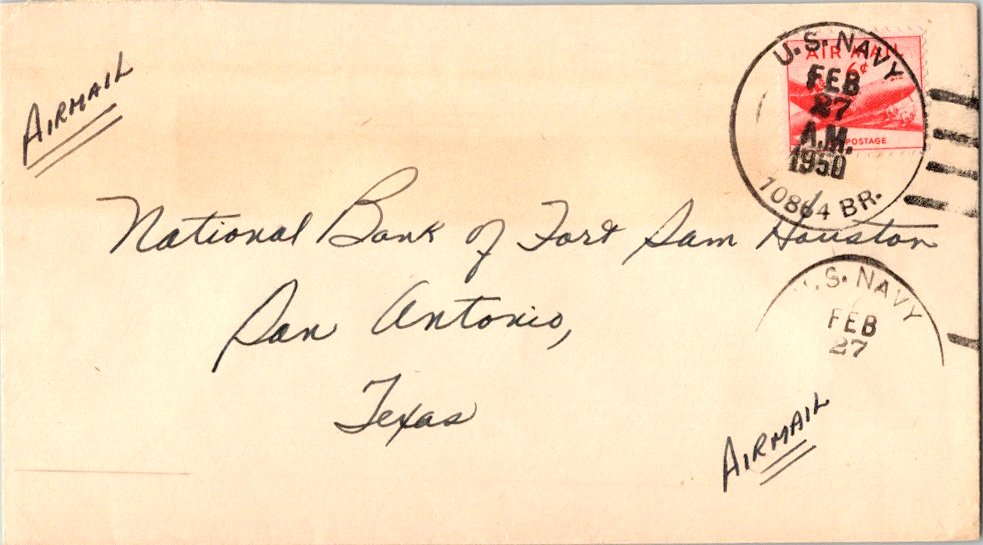 AIRMAIL
U.S. NAVY
AIR MAIL
6¢
FEB
27
A.M.
1950
POSTAGE
10864 BR.
National Bank of Fort Sam Houston
San Antonio,
Texas
U.S. NAVY
FEB
27
AIRMAIL